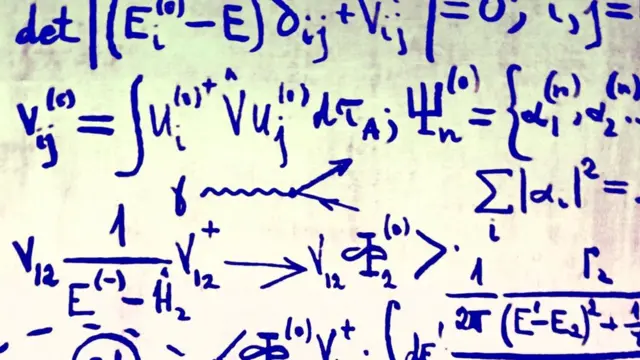 det |(E_i^(0) − E) δ_ij + V_ij | = 0, i, j =
V_ij^(0) = ∫ u_i^(0)+ V̂ u_j^(0) dτ_A; Ψ_n^(0) = {α_1^(n), α_2^(n) ..
γ
∑_i |α_i|² =
V_12 1/(E^(-) − Ĥ_2) V_12^+ → V_12 Φ_2^(0) >.
1/2π Γ_2/((E' − E_2)² + 1/
Φ^(0) V^+ . ∫ dE'